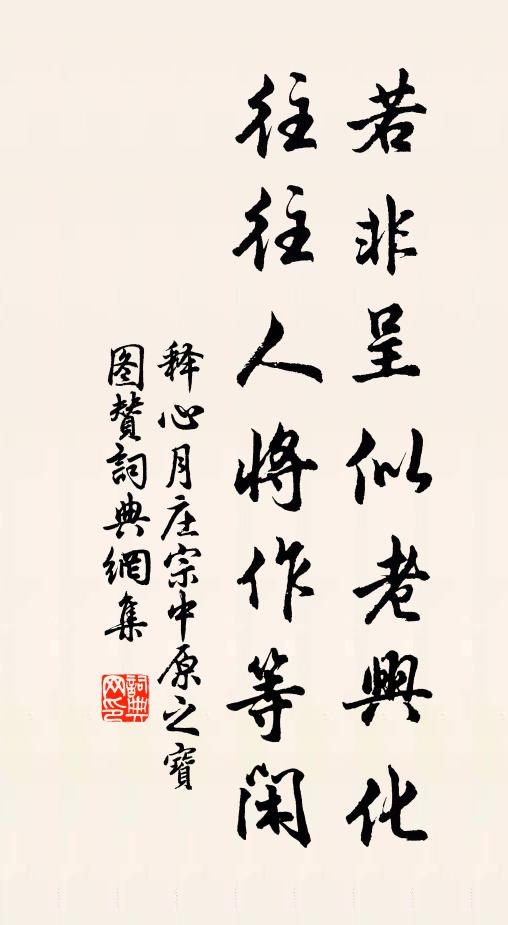 若非呈似老興化
往往人將作等閑
释心月庄宗中原之寶
图賛詞典網集
詞典网印